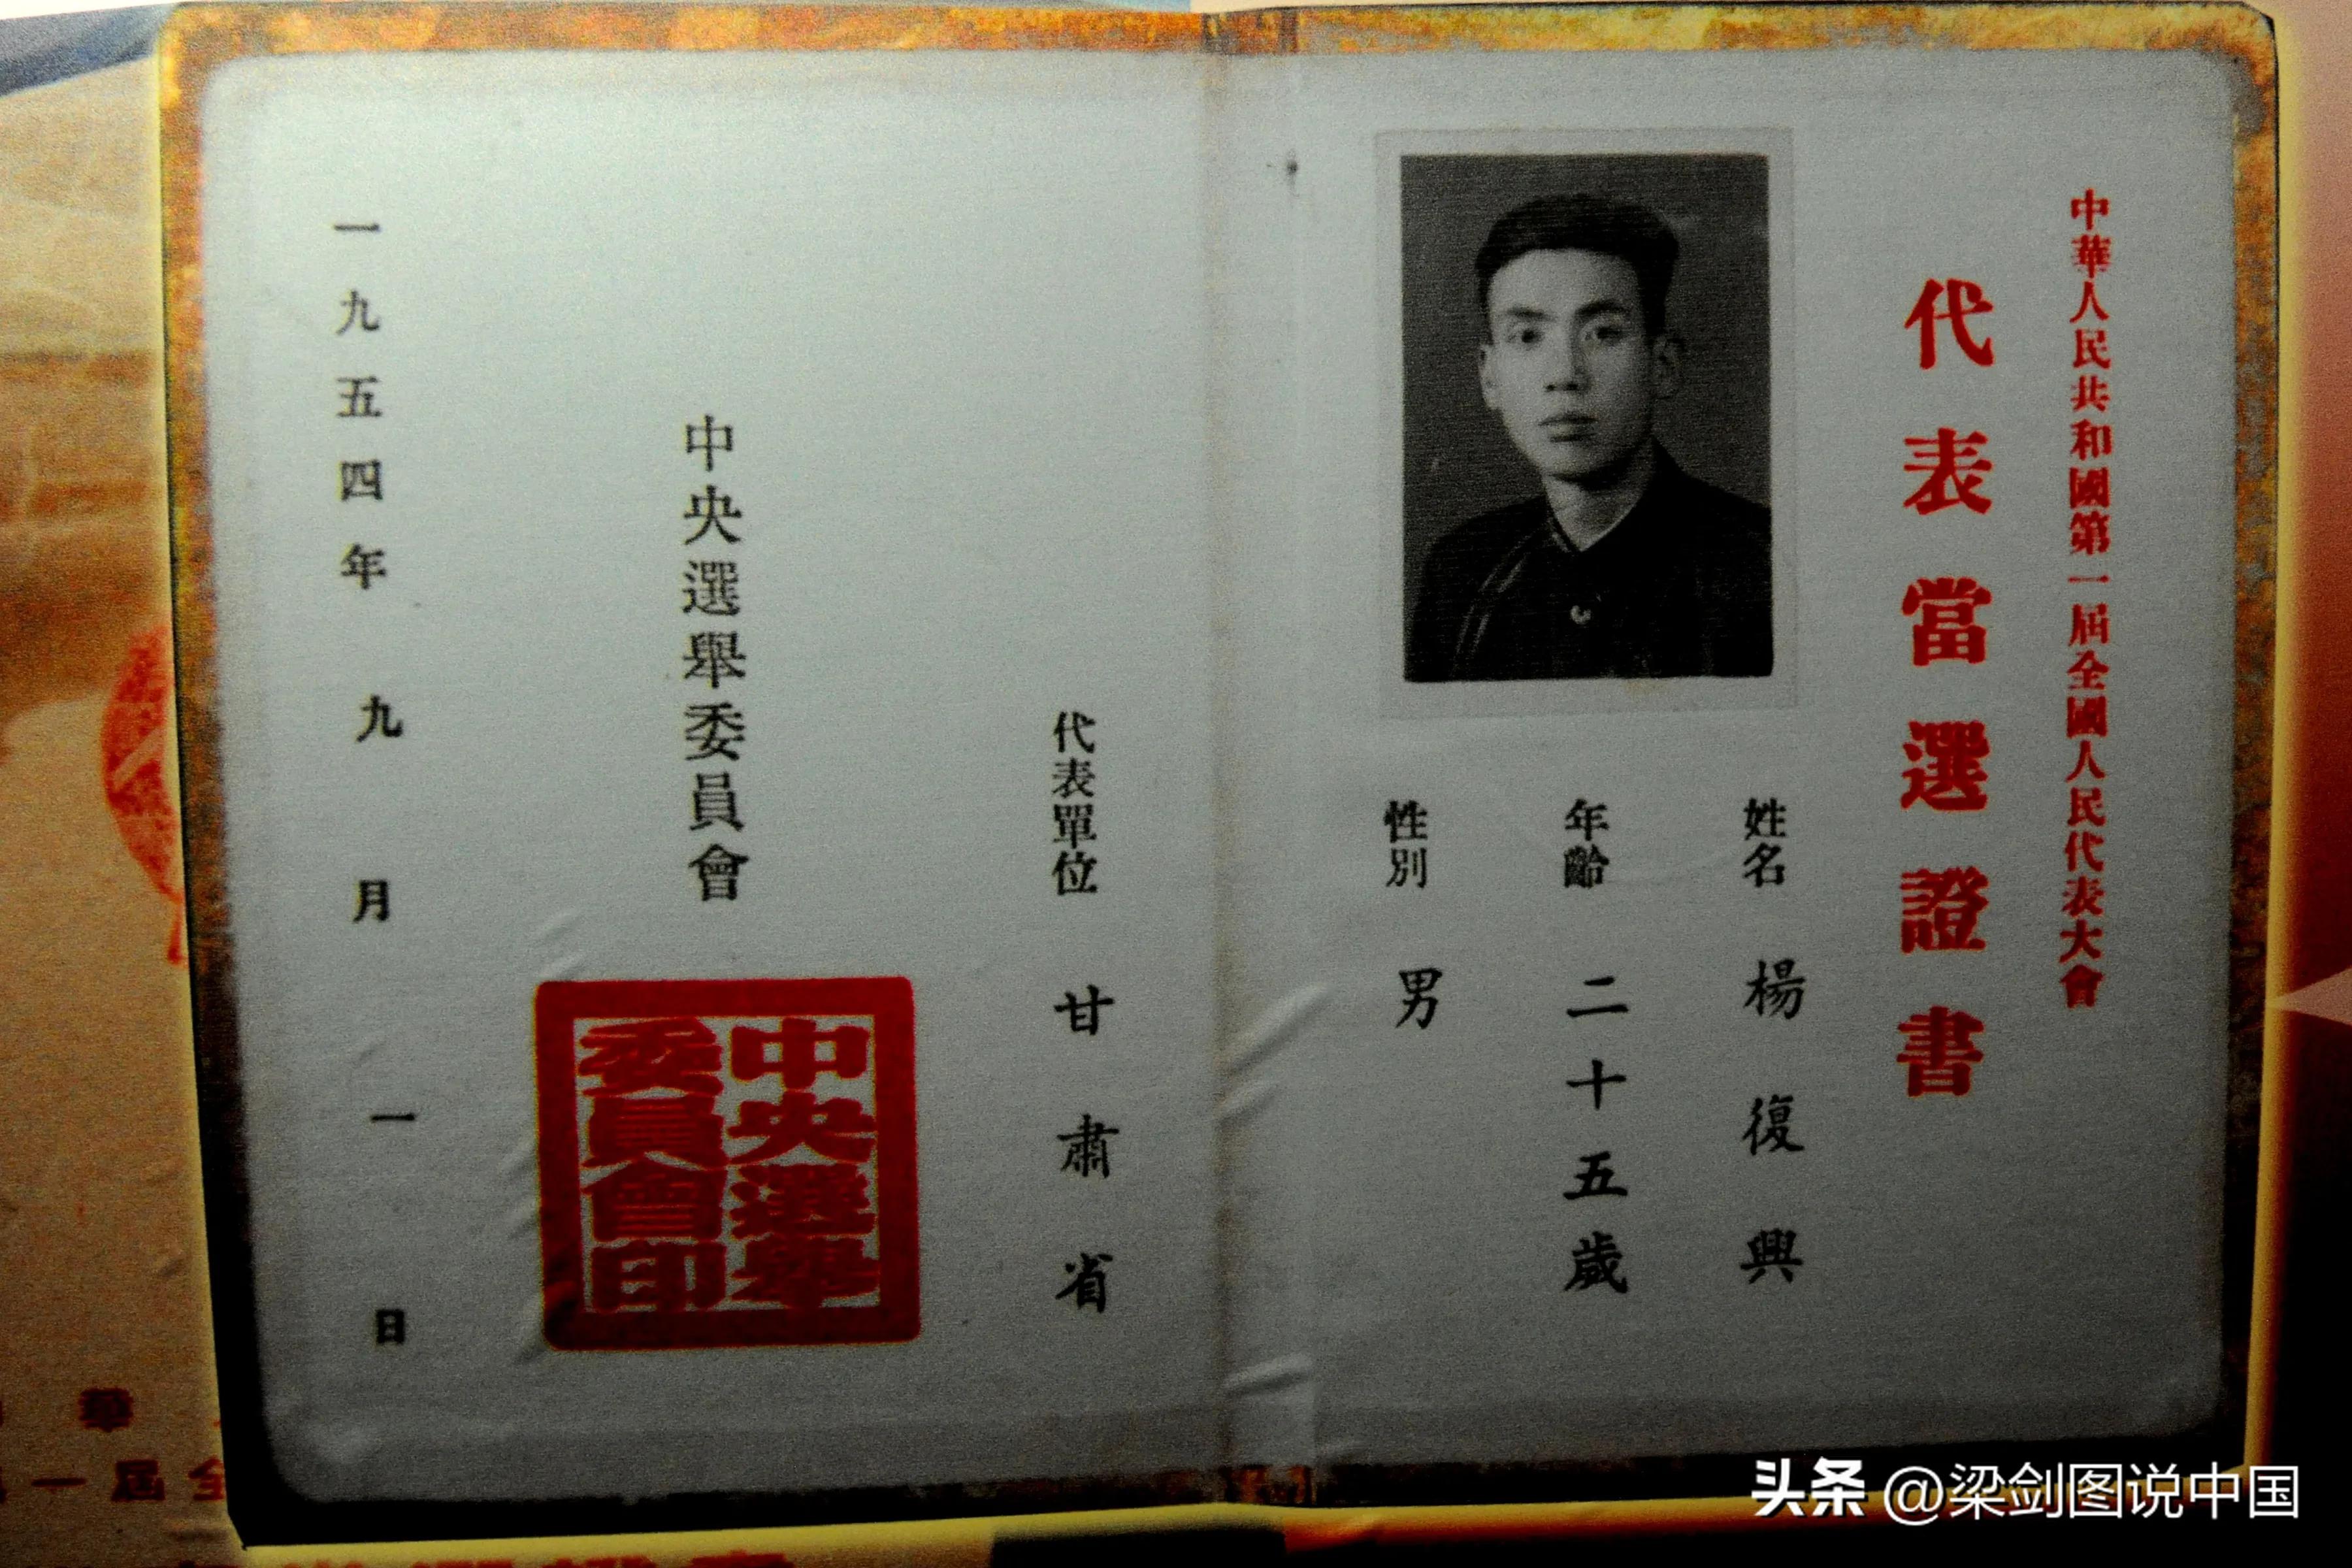 中華人民共和國第一屆全國人民代表大會
代表當選證書
姓名 楊復興
年齡 二十五歲
性別 男
代表單位 甘肅省
中央選舉委員會
中央選舉
委員會印
一九五四年九月一日
華
一屆全
头条 @梁剑图说中国